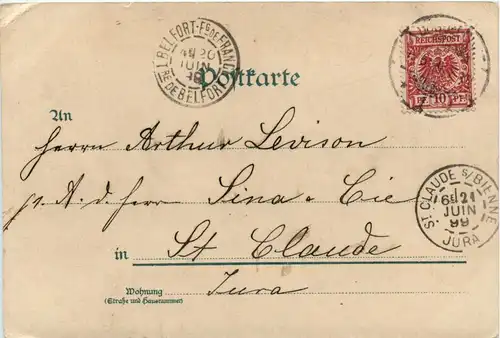 BELFORT-Fg DE FRANCE
20
JUIN
99
DE BELFORT
REICHSPOST
10
Postkarte
An
Herrn Arthur Levison
p. A. d. Herrn Sina & Cie
ST CLAUDE S/BIENNE
6E 21
JUIN
99
JURA
in St Claude
Jura
Wohnung
(Straße und Hausnummer)